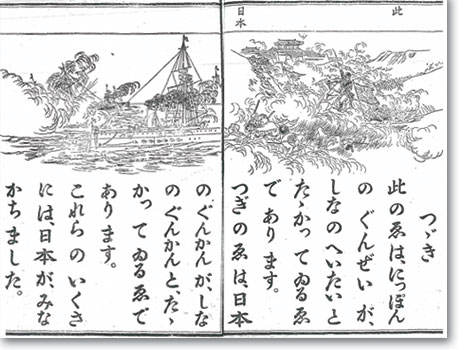 此
日本
つゞき
此のゑは、につぽん
の ぐんぜい が、
しなのへいたいと
たゝかつ てゐるゑ
で あり ます。
つぎのゑは、日本
のぐんかんが、しな
のぐんかんと、たゝ
かつ てゐるゑで
あり ます。
これら のいくさ
には、日本が、みな
かちました。